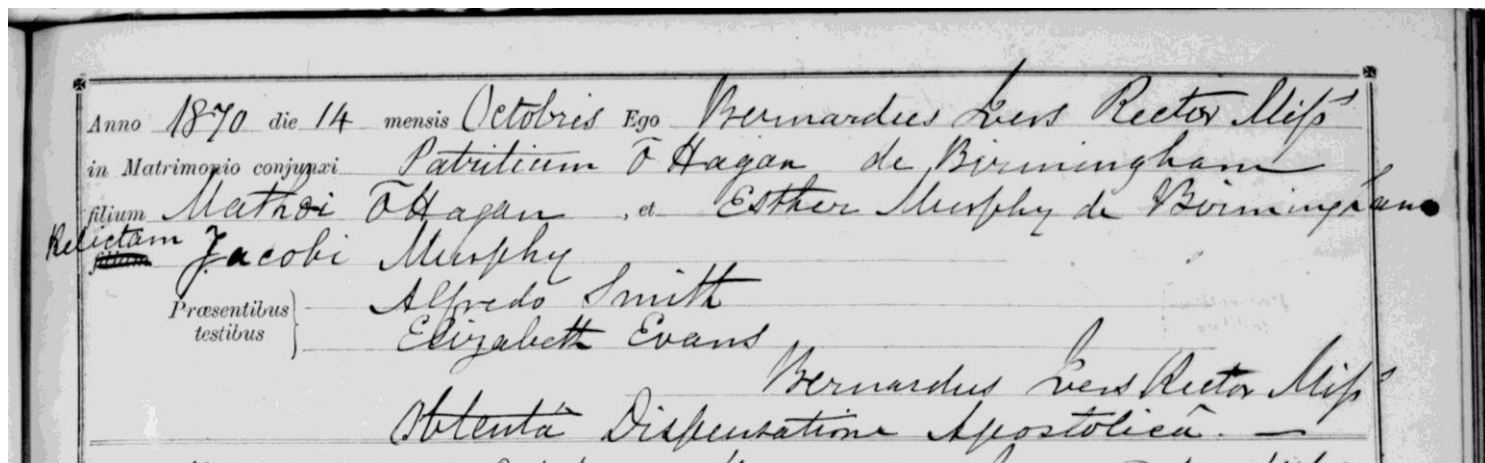 Anno 1870 die 14 mensis Octobris Ego Bernardus Ivers Rector Miss
in Matrimonio conjunxi Patritium O Hagan de Birmingham
filium Mathæi O Hagan, et Esther Murphy de Birmingham
Relictam
filiam Jacobi Murphy
Præsentibus testibus
Alfredo Smith
Elizabeth Evans
Bernardus Ivers Rector Miss
Obtentâ Dispensatione Apostolicâ. —